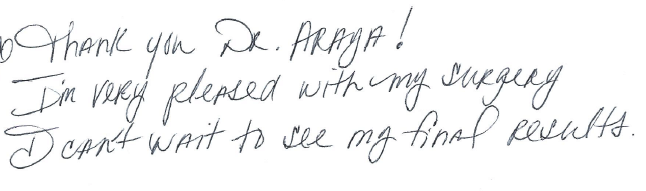 Thank you Dr. Araya!
I'm very pleased with my surgery
I can't wait to see my final results.